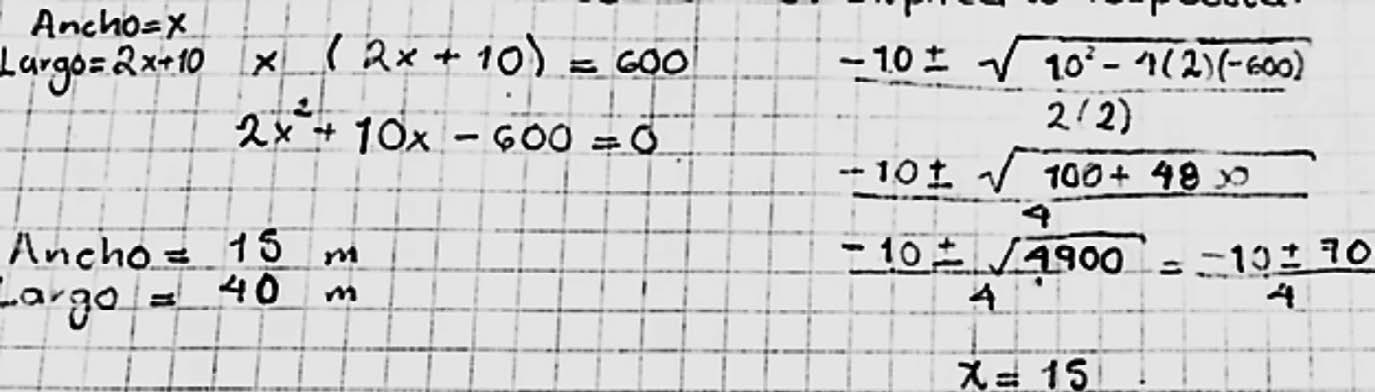 Ancho=x
Largo=2x+10
x (2x + 10) = 600
2x² + 10x - 600 = 0
Ancho = 15 m
Largo = 40 m
-10 ± √10² - 4(2)(-600)
2(2)
-10 ± √100 + 48
4
-10 ± √4900 = -10 ± 70
4 4
x = 15